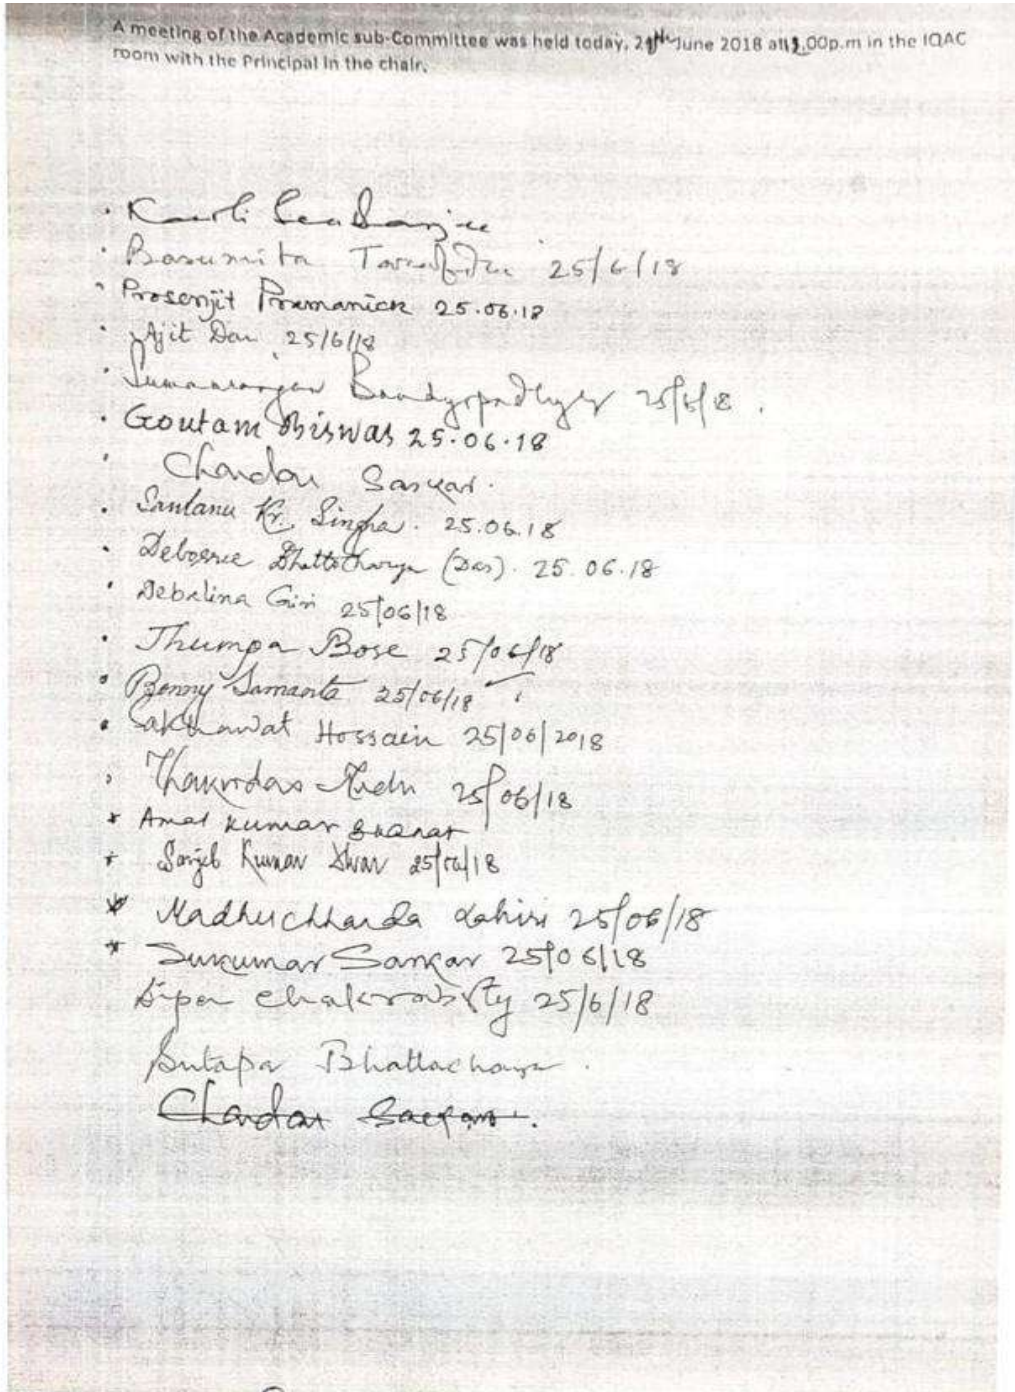 A meeting of the Academic sub-Committee was held today, June 2018 at .00p.m in the IQAC
room with the Principal in the chair.
Basumita 25/6/18
Prosenjit Pramanick 25.06.18
Ajit Das 25/6/18
Sumanrangan Bandyopadhyay 25/6/18.
Goutam Biswas 25.06.18
Chandan Sarkar.
Santanu Kr. Singha. 25.06.18
Debasree Bhattacharya (Das). 25.06.18
Debalina Giri 25/06/18
Jhumpa Bose 25/06/18
Benny Samanta 25/06/18
Sakhawat Hossain 25/06/2018
25/06/18
Amal Kumar
Kumar 25/06/18
Madhuchhanda Lahiri 25/06/18
Sukumar Sarkar 25/06/18
Dipa Chakraborty 25/6/18
Sutapa Bhattacharya.
Chandan Sarkar.